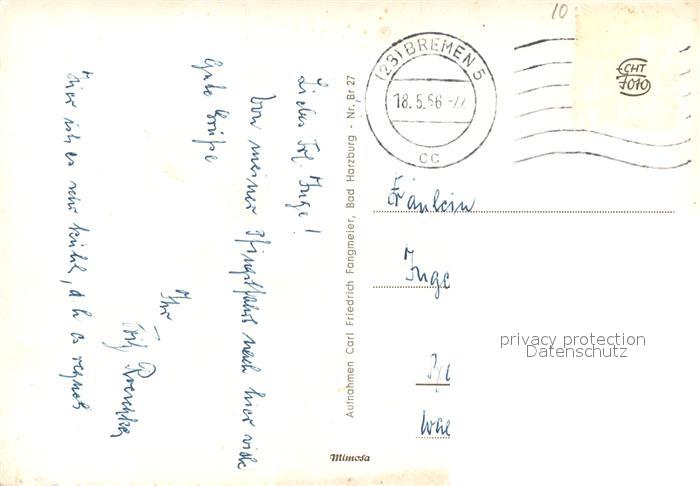 Liebes Frl. Inge!
Von meiner Pfingstfahrt nach hier viele
Gute Grüße
Ihr
Fritz
Hier ist es sehr kühl, d. h. es regnet
Aufnahmen Carl Friedrich Fangmeier, Bad Harzburg - Nr. Br 27
Mimosa
10
(23) BREMEN 5
18.5.56
cc
ECHT
FOTO
Fräulein
Inge
privacy protection
Datenschutz